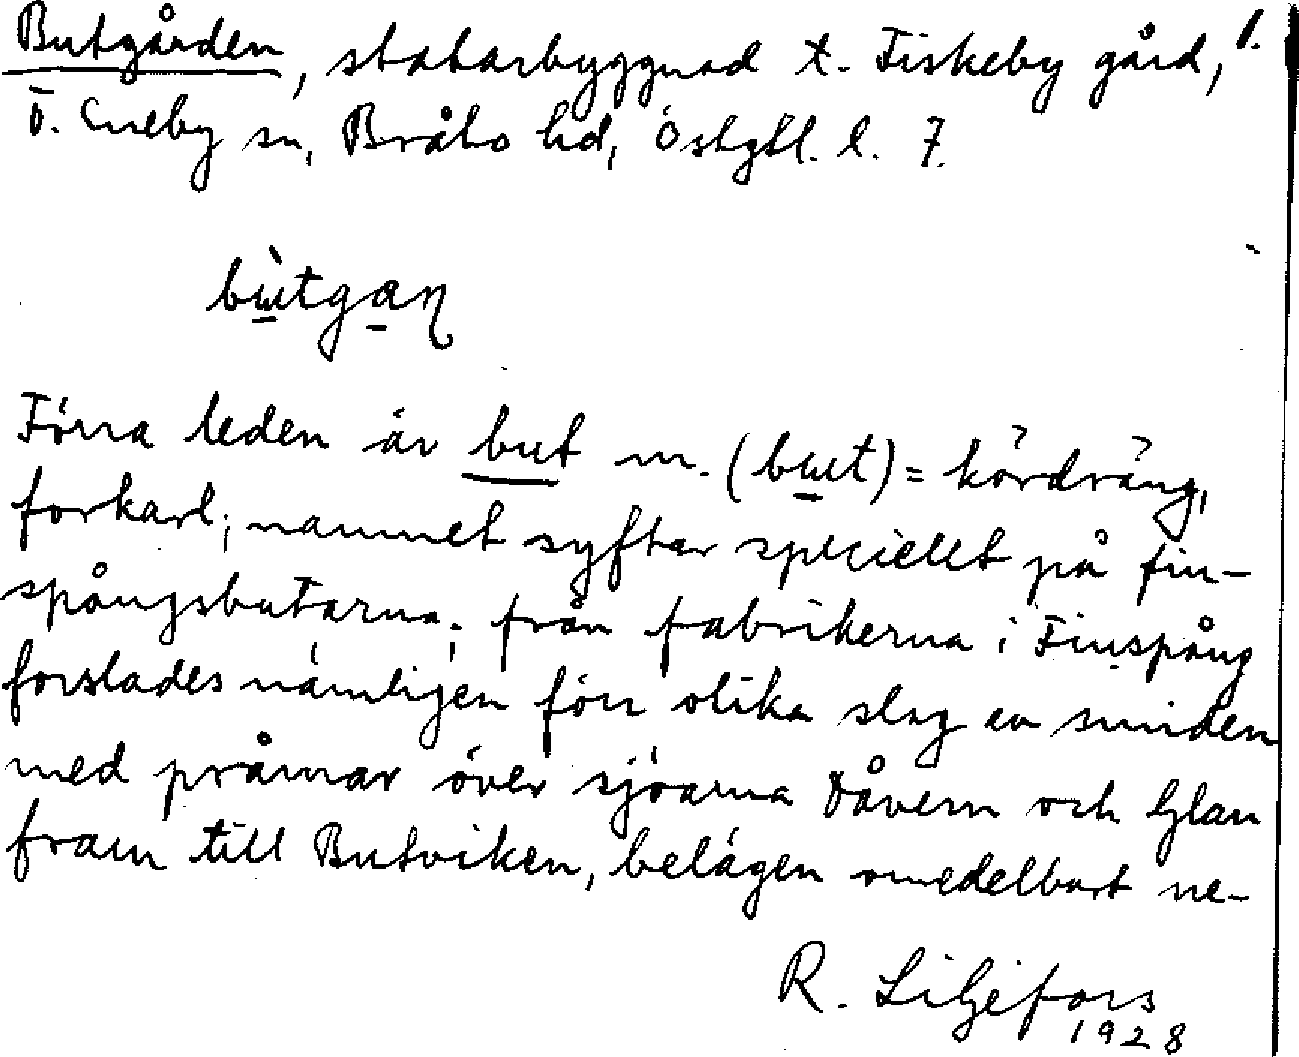 Butgården, statarbyggnad t. Fiskeby gård, 1.
Ö. Eneby sn, Bråbo hd, Östgtl. l. 7.
bu̠̇tga̠ɳ
Förra leden är but m. (bu̠t) = kördräng,
forkarl; namnet syftar speciellt på fin-
spångsbutarna; från fabrikerna i Finspång
forslades nämligen förr olika slag av smiden
med pråmar över sjöarna Dåvern och Glan
fram till Butviken, belägen omedelbart ne-
R. Liljefors
1928